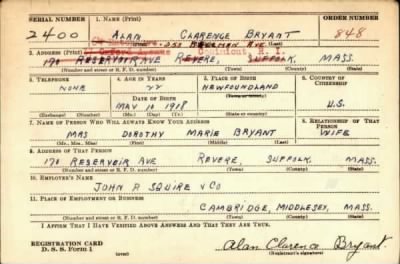 SERIAL NUMBER 1. NAME (Print) ORDER NUMBER
2400 ALAN CLARENCE BRYANT 848
(First) (Middle) (Last)
2. ADDRESS (Print) AVE Conimicut, R. I.
170 RESERVOIR AVE REVERE, SUFFOLK, MASS.
(Number and street or R. F. D. number) (Town) (County) (State)
3. TELEPHONE 4. AGE IN YEARS 5. PLACE OF BIRTH 6. COUNTRY OF CITIZENSHIP
NONE 22 NEWFOUNDLAND
DATE OF BIRTH (Town or county)
MAY 10 1918 U.S.
(Exchange) (Number) (Mo.) (Day) (Yr.) (State or country)
7. NAME OF PERSON WHO WILL ALWAYS KNOW YOUR ADDRESS 8. RELATIONSHIP OF THAT PERSON
MRS DOROTHY MARIE BRYANT WIFE
(Mr., Mrs., Miss) (First) (Middle) (Last)
9. ADDRESS OF THAT PERSON
170 RESERVOIR AVE REVERE, SUFFOLK, MASS.
(Number and street or R. F. D. number) (Town) (County) (State)
10. EMPLOYER'S NAME
JOHN P SQUIRE & CO
11. PLACE OF EMPLOYMENT OR BUSINESS
CAMBRIDGE, MIDDLESEX, MASS.
(Number and street or R. F. D. number) (Town) (County) (State)
I AFFIRM THAT I HAVE VERIFIED ABOVE ANSWERS AND THAT THEY ARE TRUE.
REGISTRATION CARD
D. S. S. Form 1 (over) Alan Clarence Bryant.
(Registrant's signature)